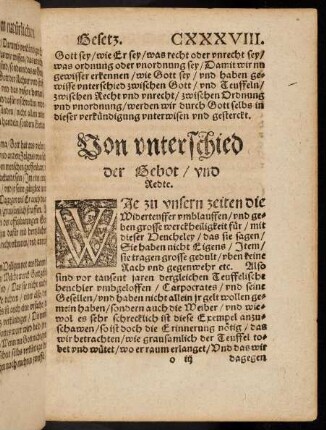 Gesetz. CXXXVIII.
Gott sey/ wie Er sey/ was recht oder vnrecht sey/
was ordnung oder vnordnung sey/ Damit wir nu
gewisser erkennen/ wie Gott sey/ vnd haben ge-
wisse vnterschied zwischen Gott/ vnd Teuffeln/
zwischen Recht vnd vnrecht/ zwischen Ordnung
vnd vnordnung/ werden wir durch Gott selbs in
dieser verkündigung vnterwisen vnd gesterckt.
Von vnterschied
der Gebot/ vnd
Redte.
WJe zu vnsern zeiten die
Widerteuffer vmblauffen/ vnd ge-
ben grosse werckheiligkeit für/ mit
dieser Heucheley/ das sie sagen/
Sie haben nicht Eigens/ Jtem/
sie tragen grosse gedult/ vben keine
Rach vnd gegenwehr etc. Also
sind vor tausent jaren dergleichen Teuffelische
heuchler vmbgeloffen/ Carpocrates/ vnd seine
Gesellen/ vnd haben nicht allein jr gelt wollen ge-
mein haben/ sondern auch die Weiber/ vnd wie-
wol es sehr schrecklich ist diese Exempel anzu-
schawen/ so ist doch die Erinnerung nötig/ das
wir betrachten/ wie grausamlich der Teuffel to-
bet vnd wütet/ wo er raum erlanget/ Vnd das wir
o iij dagegen